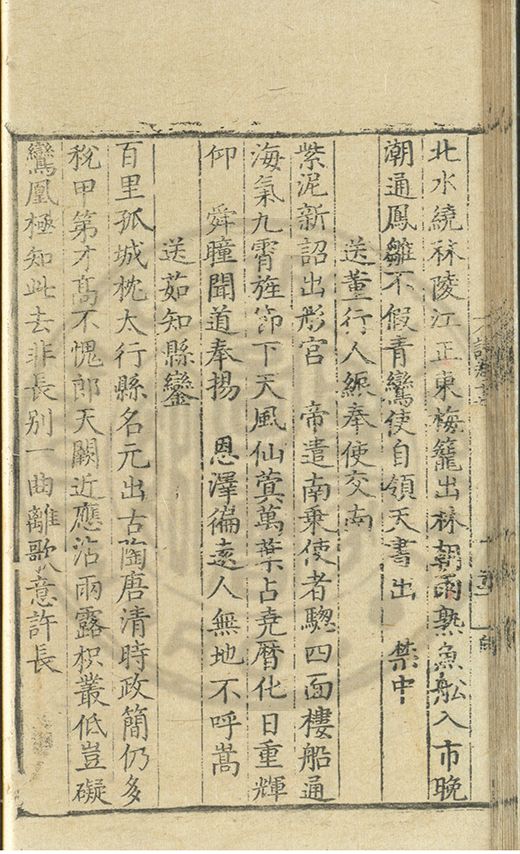 北水繞秣陵江正東梅籠出林朝雨熟魚舩入市晚
潮通鳳雛不假青鸞使自領天書出　禁中
送董行人綖奉使交南
紫泥新詔出彤宮　帝遣南乗使者驄四面樓船通
海氣九霄旌節下天風仙蓂萬葉占堯曆化日重輝
仰　舜瞳聞道奉揚　恩澤徧逺人無地不呼嵩
送茹知縣鑾
百里孤城枕太行縣名元出古陶唐清時政簡仍多
稅甲第才髙不愧郎天闕近應沾雨露枳叢低豈礙
鸞凰極知此去非長别一曲離歌意許長